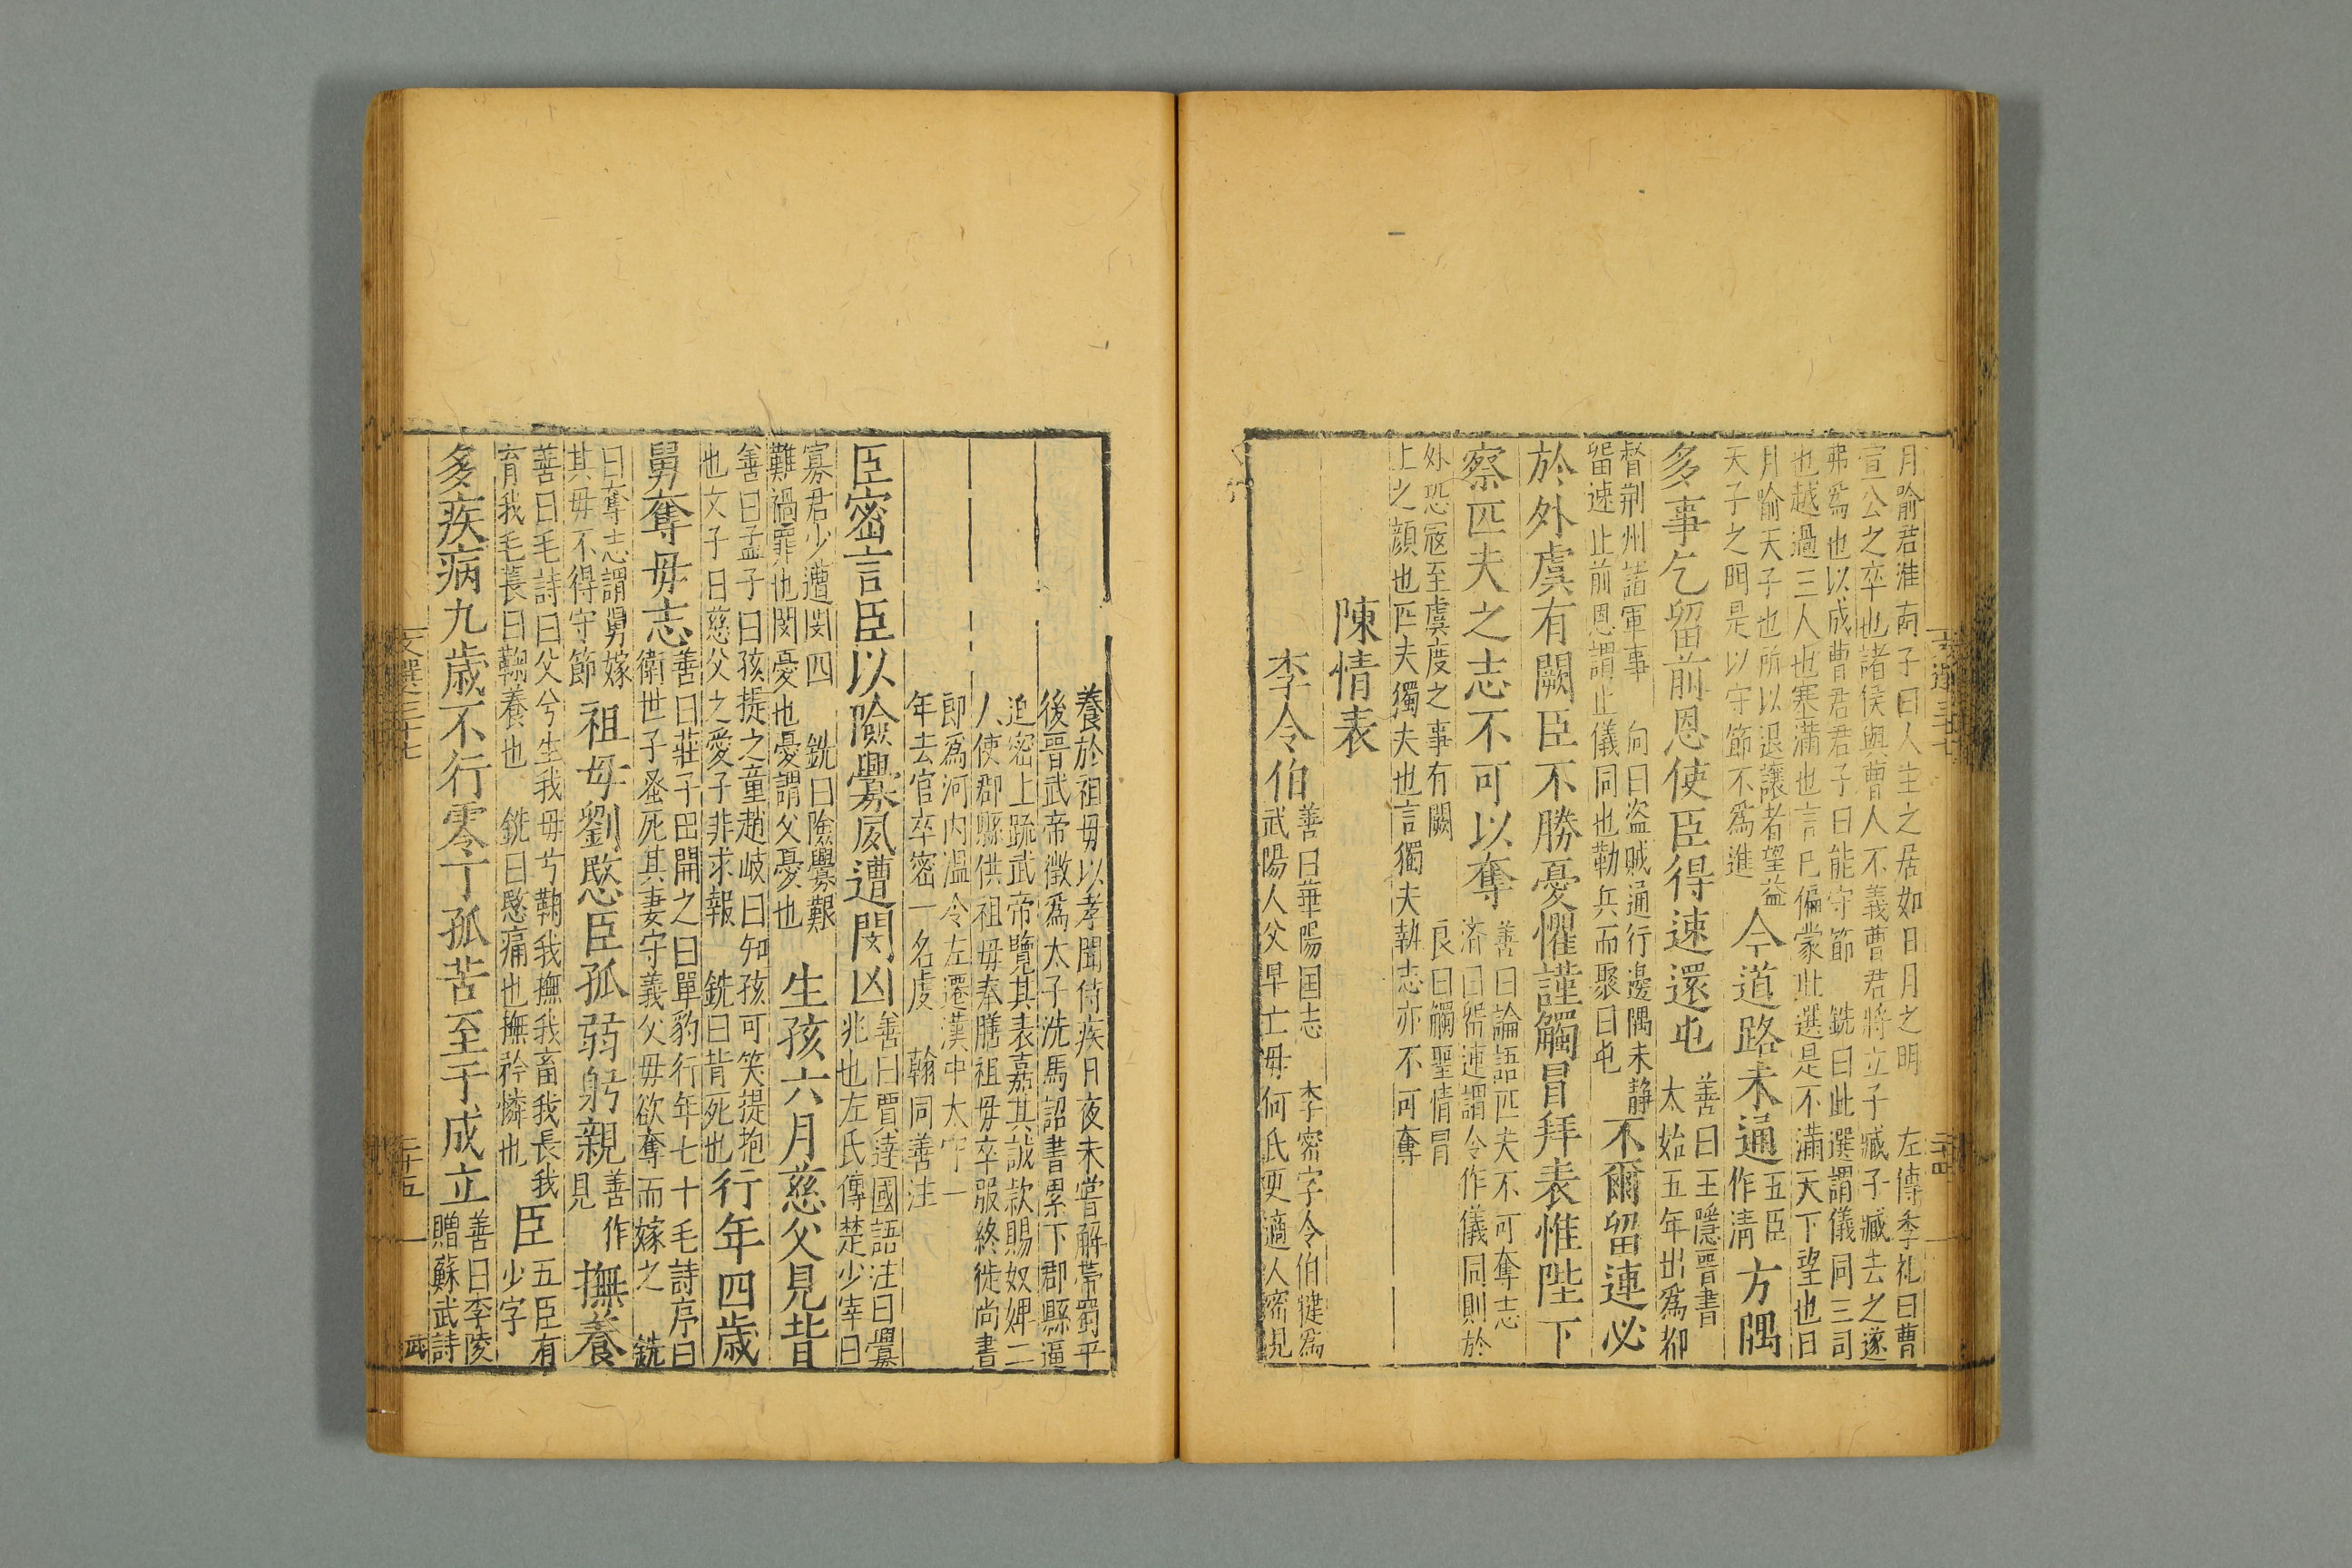 月喻君淮南子曰人主之居如日月之明　左傳季札曰曹
宣公之卒也諸侯與曹人不義曹君將立子臧子臧去之遂
弗爲也以成曹君君子曰能守節　銑曰此選謂儀同三司
也越過三人也塞滿也言已偏蒙此選是不滿天下望也日
月喻天子也所以退讓者望益
天子之明是以守節不爲進
今道路未通
五臣
作淸
方隅
多事乞留前恩使臣得速還屯
善曰王隱晉書
太始五年出爲都
督荆州諸軍事　向曰盗賊通行邊隅未静
留速止前恩謂止儀同也勒兵而聚曰屯
不爾留連必
於外虞有闕臣不勝憂懼謹觸冒拜表惟陛下
察匹夫之志不可以奪
善曰論語匹夫不可奪志
濟曰留連謂令作儀同則於
外恐冦至虞度之事有闕　良曰觸聖情冒
上之顔也匹夫獨夫也言獨夫執志亦不可奪
陳情表
李令伯
善曰華陽国志　李密字令伯犍爲
武陽人父早亡毋何氏更適人密見
養於祖毋以孝聞侍疾日夜未嘗解帶蜀平
後晋武帝徵爲太子洗馬詔書累下郡縣逼
迫密上䟽武帝覽其表嘉其誠款賜奴婢二
人使郡縣供祖毋奉膳祖毋卒服終徙尚書
郎爲河内温令左遷漢中太守一
年去官卒密一名虔　翰同善注
臣密言臣以險釁夙遭閔凶
善曰賈逵國語注曰釁
兆也左氏傳楚少宰曰
寡君少遭閔凶　銑曰險釁艱
難禍罪也閔憂也憂謂父憂也
生孩六月慈父見背
善曰孟子曰孩提之童趙岐曰知孩可笑提抱
也文子曰慈父之愛子非求報　銑曰背死也
行年四歲
舅奪毋志
善曰莊子田開之曰單豹行年七十毛詩序曰
衛世子蚤死其妻守義父毋欲奪而嫁之　銑
曰奪志謂舅嫁
其毋不得守節
祖毋劉愍臣孤弱躬親
善作
見
撫養
善曰毛詩曰父兮生我毋兮鞠我撫我畜我長我
育我毛萇曰鞠養也　銑曰愍痛也撫矜憐也
臣
五臣有
少字
多疾病九歲不行零丁孤苦至于成立
善曰李陵
贈蘇武詩
文選三十七
二十五
武